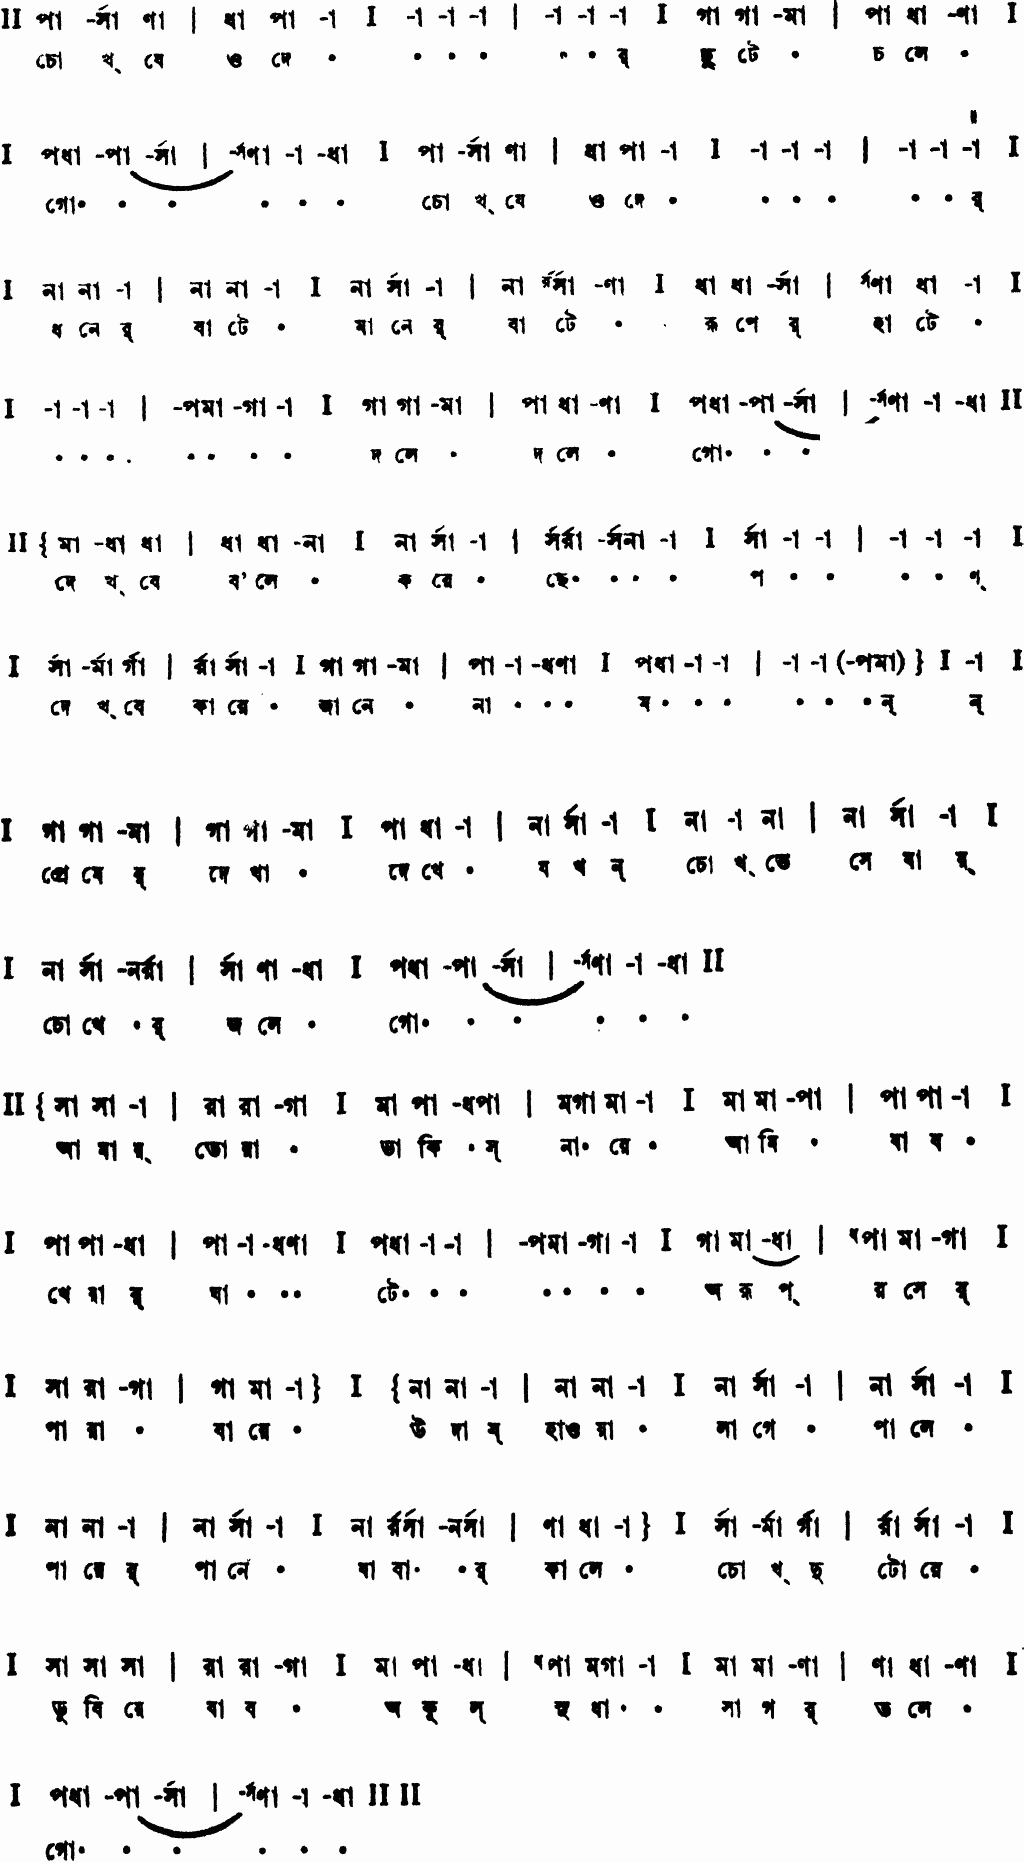 II পা -র্সা ণা | ধা পা -া I -া -া -া | -া -া -া I গা গা -মা | পা ধা -ণা I
চো খ্ যে ও দে • • • • • • র্ ছু টে • চ লে •
I পধা -পা -র্সা | -র্সণা -া -ধা I পা -র্সা ণা | ধা পা -া I -া -া -া | -া -া -া I
গো• • • • • • চো খ্ যে ও দে • • • • • • র্
I না না -া | না না -া I না র্সা -া | না র্রর্সা -ণা I ধা ধা -র্সা | র্সণা ধা -া I
ধ নের্ ঘা টে • মা নের্ বা টে • রূ পে র্ হা টে •
I -া -া -া | -পমা -গা -া I গা গা -মা | পা ধা -ণা I পধা -পা -র্সা | -র্সণা -া -ধা II
• • • • • • • • দ লে • দ লে • গো• • •
II { মা -ধা ধা | ধা ধা -না I না র্সা -া | র্সর্রা -র্সনা -া I র্সা -া -া | -া -া -া I
দে খ্ বে ব'লে • ক রে • ছে• • • • প • • • • ণ্
I র্সা -র্মা র্গা | র্রা র্সা -া I গা গা -মা | পা -া -ধণা I পধা -া -া | -া -া (-পমা) } I -া I
দে খ্ বে কা রে • জা নে • না • • • ম • • • • • • ন্ ন্
I গা গা -মা | গা গা -মা I পা ধা -া | না র্সা -া I না -া না | না র্সা -া I
প্রে মের্ দে খা • দে খে • য খ ন্ চো খ্ তে সে যা য়্
I না র্সা -নর্রা | র্সা ণা -ধা I পধা -পা -র্সা | -র্সণা -া -ধা II
চো খে • র্ জ লে • গো• • • • • •
II { সা সা -া | রা রা -গা I মা পা -ধপা | মগা মা -া I মা মা -পা | পা পা -া I
আ মায়্ তো রা • ডা কি • স্ না• রে • আ মি • যা ব •
I পা পা -ধা | পা -া -ধণা I পধা -া -া | -পমা -গা -া I গা মা -ধা | ধপা মা -গা I
খে য়া র্ ঘা • • • টে• • • • • • • অ রূ প্ র সে র্
I সা রা -গা | গা মা -া } I { না না -া | না না -া I না র্সা -া | না র্সা -া I
পা রা • বা রে • উ দাস্ হাও য়া • লা গে • পা লে •
I না না -া | না র্সা -া I না র্রর্সা -নর্সা | ণা ধা -া } I র্সা -র্মা র্গা | র্রা র্সা -া I
পা রের্ পা নে • যা বা• • র্ কা লে • চো খ্ দু টোরে •
I সা সা সা | রা রা -গা I মা পা -ধা | ধপা মগা -া I মা মা -ণা | ণা ধা -ণা I
ডু বি য়ে যা ব • অ কূ ল্ সু ধা• • সা গর্ ত লে •
I পধা -পা -র্সা | -র্সণা -া -ধা II II
গো• • • • • •